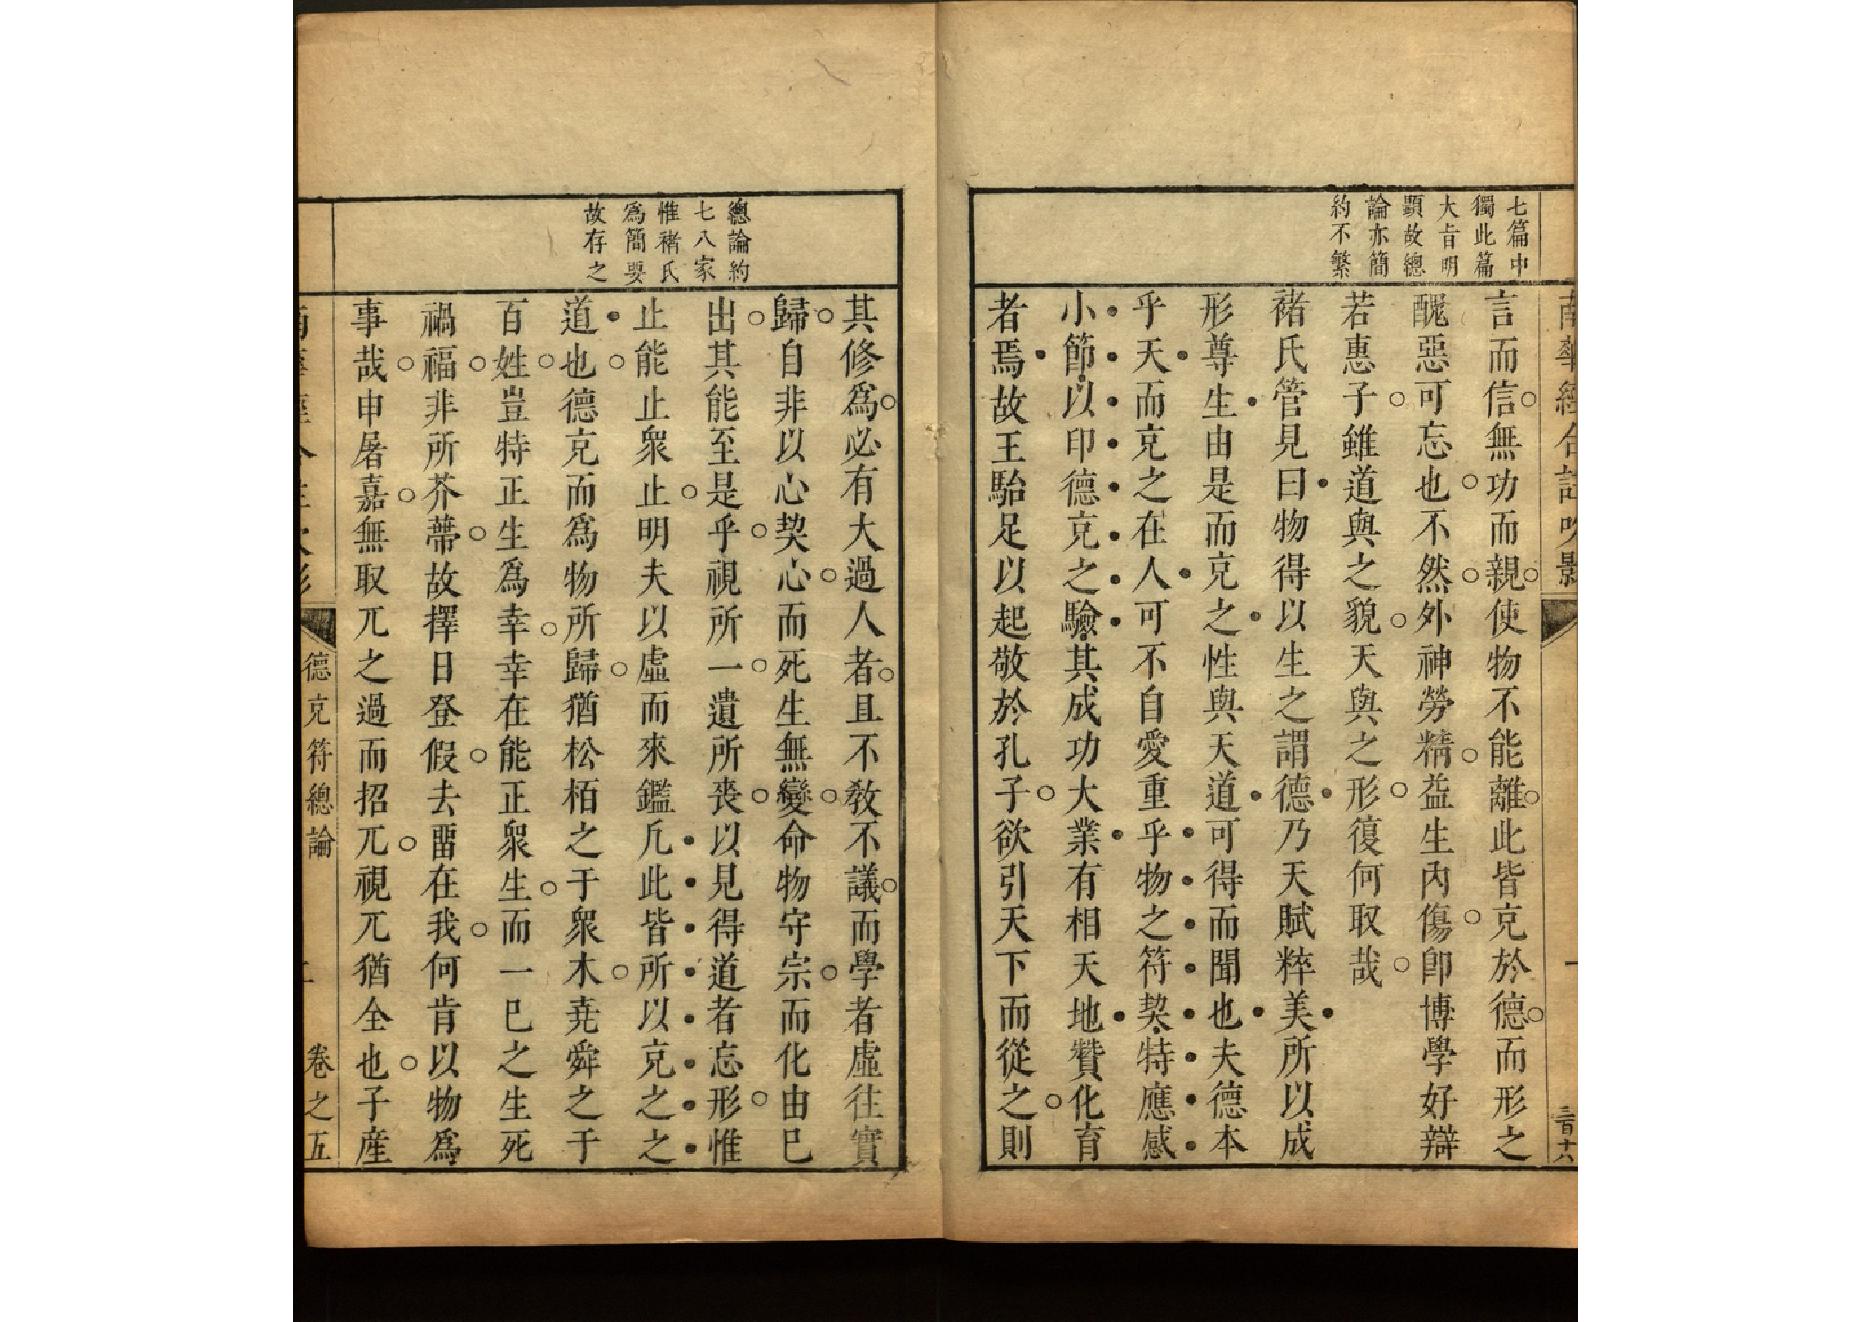 七篇中
獨此篇
大旨明
顯故總
論亦簡
約不繁
言而信無功而親使物不能離此皆充於德而形之
醜惡可忘也不然外神勞精益生内傷卽博學好辯
若惠子雖道與之貌天與之形復何取哉
褚氏管見曰物得以生之謂德乃天賦粹美所以成
形尊生由是而充之性與天道可得而聞也夫德本
乎天而充之在人可不自愛重乎物之符契特應感
小節以印德充之驗其成功大業有相天地贊化育
者焉故王駘足以起敬於孔子欲引天下而從之則
總論約
七八家
惟褚氏
爲簡要
故存之
其修爲必有大過人者且不教不議而學者虛往實
歸自非以心契心而死生無變命物守宗而化由已
出其能至是乎視所一遺所喪以見得道者忘形惟
止能止衆止明夫以虛而來鑑凡此皆所以充之之
道也德充而爲物所歸猶松栢之于衆木堯舜之于
百姓豈特正生爲幸幸在能正衆生而一已之生死
禍福非所芥蔕故擇日登假去畱在我何肯以物爲
事哉申屠嘉無取兀之過而招兀視兀猶全也子産
德充符總論
卷之五